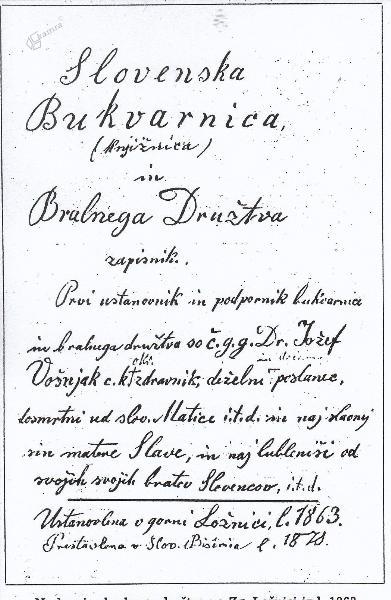 Kamra
Slovenska
Bukvarnica,
(Knjižnica)
in
Bralnega Družtva
zapisnik.
Prvi ustanovnik in podpornik bukvarnice
in bralnega družtva so č.g.g. Dr. Jožef
okr.
Vošnjak c. k. zdravnik, deželni poslanec,
dosmrtni ud slov. Matice i.t.d. sin naj slavnij
sin matere Slave, in naj lubleniši od
svojih svojih bratov Slovencov, i.t.d.
Ustanovlena v gorni Ložnici, l. 1863.
Prestavlena v Slov. Bistrica l. 1878.